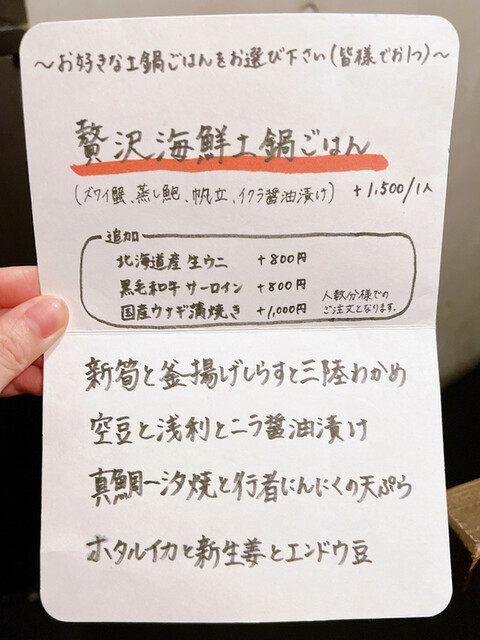 〜お好きな土鍋ごはんをお選び下さい(皆様でお1つ)〜
贅沢海鮮土鍋ごはん
(ズワイ蟹、蒸し鮑、帆立、イクラ醤油漬け) +1,500/1人
追加
北海道産 生ウニ +800円
黒毛和牛 サーロイン +800円
国産ウナギ蒲焼き +1,000円
人数分様での
ご注文となります。
新筍と釜揚げしらすと三陸わかめ
空豆と浅利とニラ醤油漬け
真鯛一汐焼と行者にんにくの天ぷら
ホタルイカと新生姜とエンドウ豆